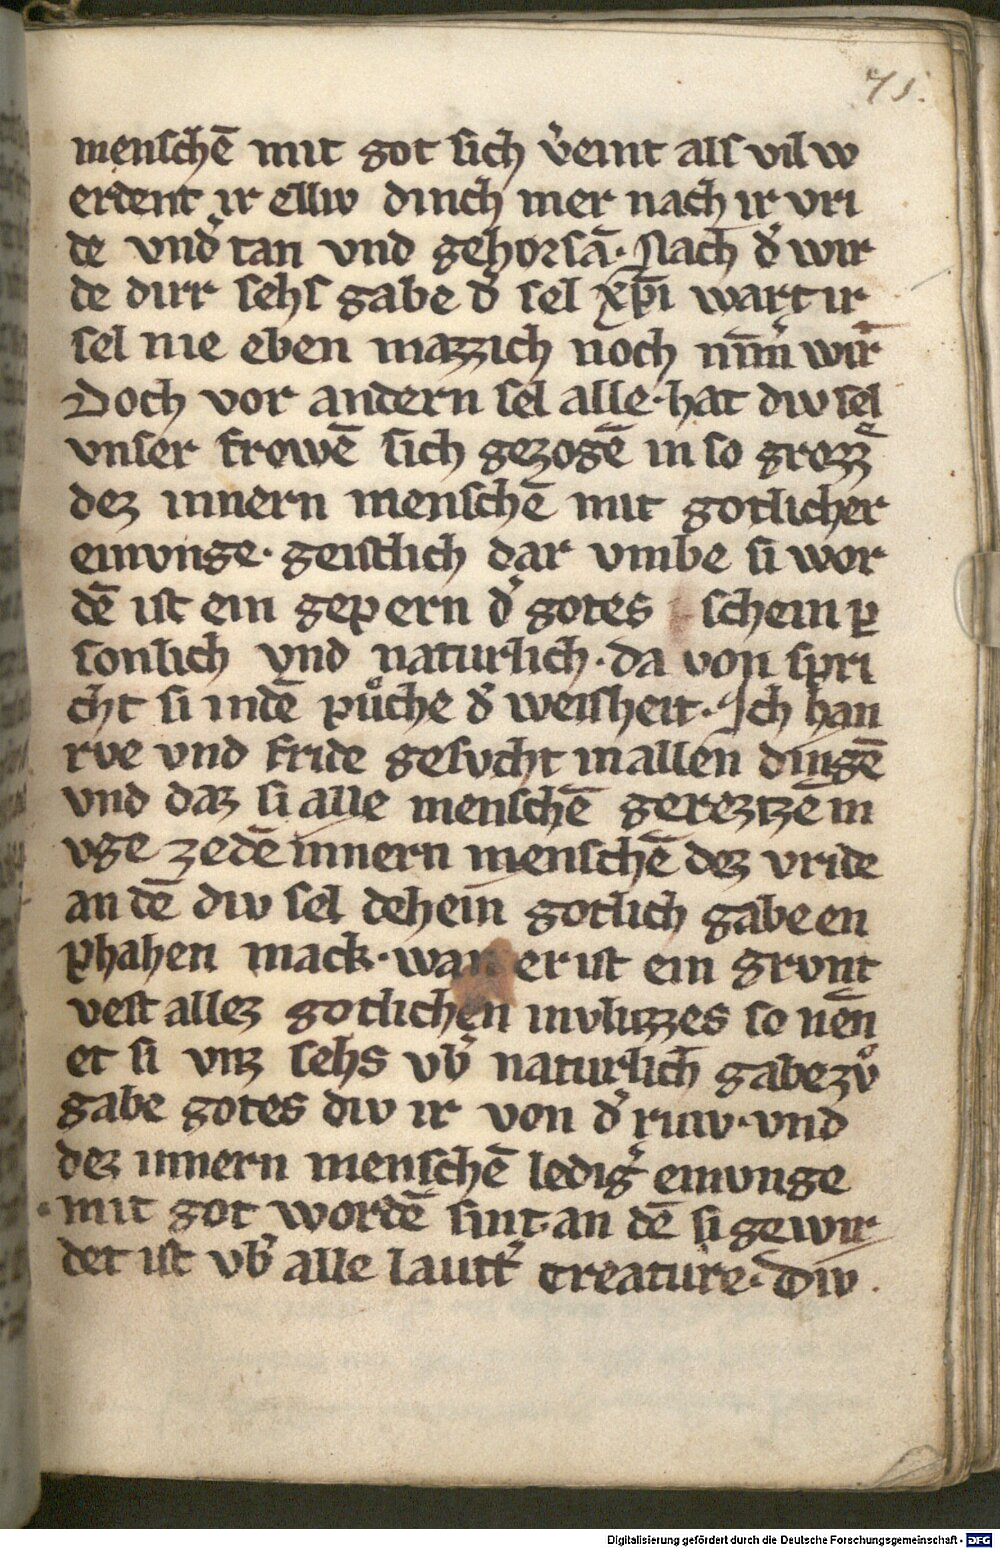 71.
menschē mit got sich v̉eint als vil w
erdent ir ellw dinch mer nach ir vri
de vnd̉ tan vnd gehorsā· Nach d̉ wir
de dirr sehs gabe d̉ sel xp̄i wart ir
sel nie eben mazzich noch nim̄m̉ wir̄
Doch vor andern sel alle·hat div sel
vnser frowē sich gezogē in so grozzͤ
dez innern menschē mit gotlicher
einvnge· geistlich dar vmbe si wor
dē ist ein gepern d̉ gotes schein p̱
sonlich vnd naturlich·da von spri
cht si indē pu̓che d̉ weisheit·Ich han
rve vnd fride gesvcht in allen dingē
vnd daz si alle menschē gereztzē in
vge zedē innern menschē dez vride
an dē div sel dehein gotlich gabe en
phahen mack·wan er ist ein grvnt
vest allez gotlichen invluzzes so nēn
et si vnz sehs vb̉ naturlich gabezvͦ
gabe gotes div ir von d̉ riuv·vnd
dez innern menschē ledig̉ einvnge
mit got wordē sint·an dē si gewir
det ist vb̉ alle lautt̉ creature·Div
Digitalisierung gefördert durch die Deutsche Forschungsgemeinschaft - DFG